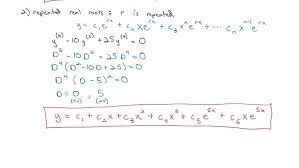 2) repeated real roots : r is repeated
y = c₁e^{rx} + c₂xe^{rx} + c₃x²e^{rx} + ... cₙx^{n-1}e^{rx}
y^{(6)} - 10y^{(5)} + 25y^{(4)} = 0
D⁶ - 10D⁵ + 25D⁴ = 0
D⁴(D² - 10D + 25) = 0
D⁴(D - 5)² = 0
D = 0, 5
(x4) (x2)
y = c₁ + c₂x + c₃x² + c₄x³ + c₅e^{5x} + c₆xe^{5x}